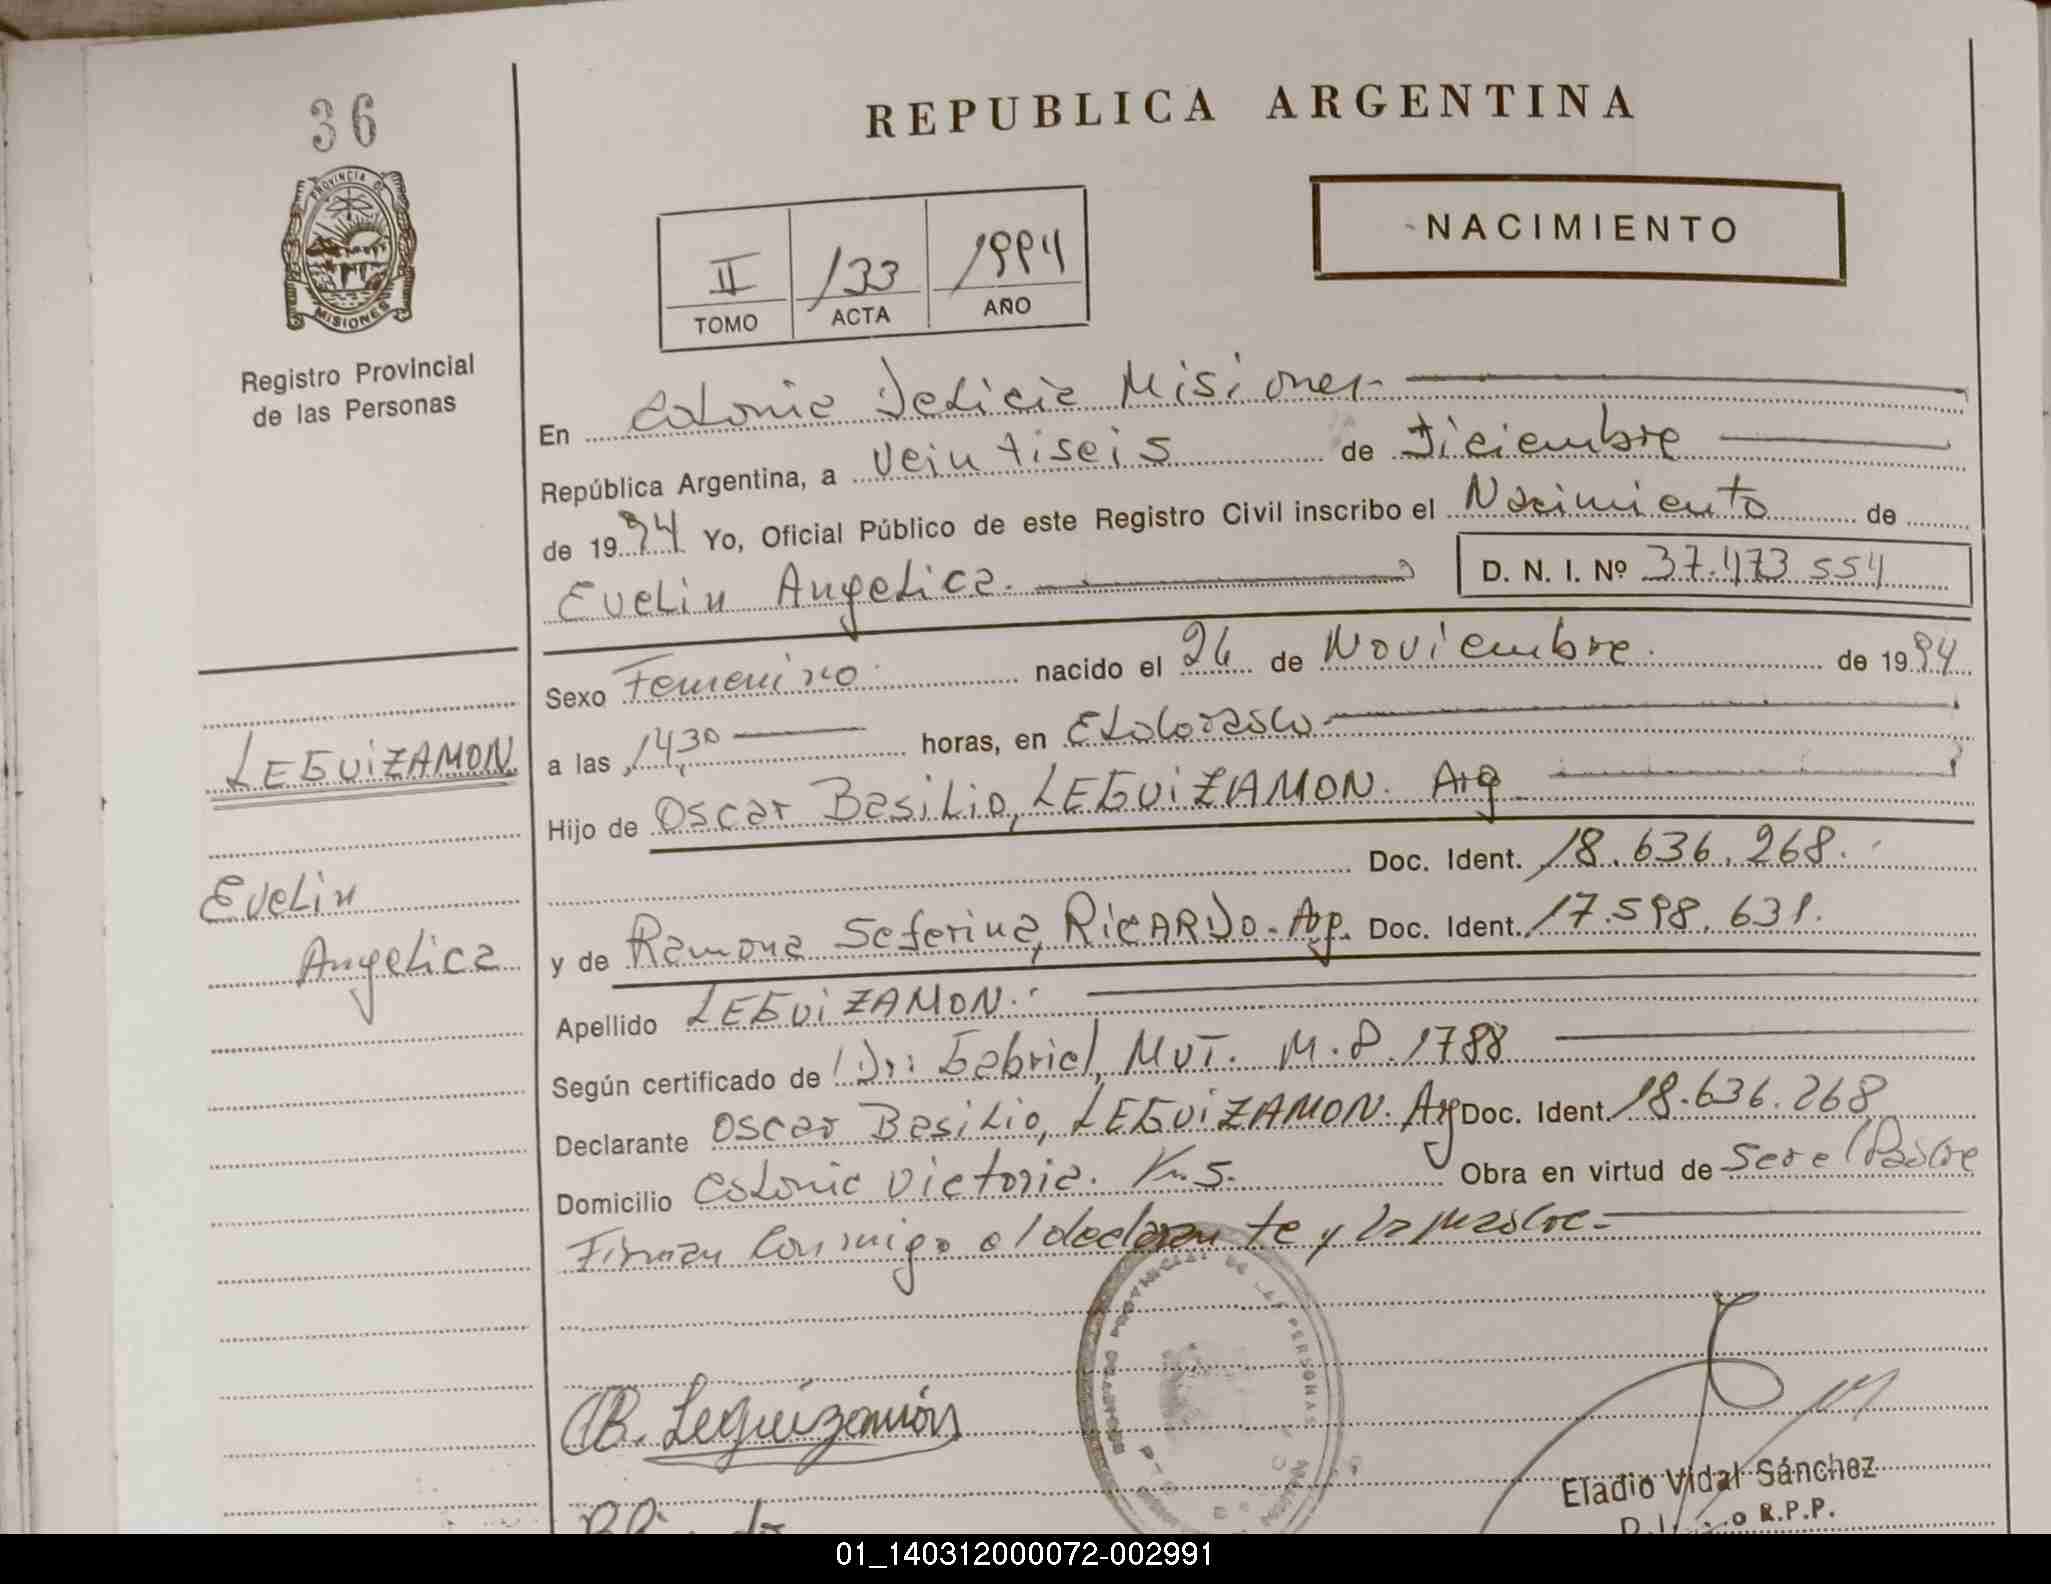 36
REPUBLICA ARGENTINA
PROVINCIA DE
MISIONES
Registro Provincial
de las Personas
NACIMIENTO
II 133 1994
TOMO ACTA AÑO
En Colonia Delicia Misiones
República Argentina, a veintiseis de Diciembre
de 1994 Yo, Oficial Público de este Registro Civil inscribo el Nacimiento de
Evelin Angelica. D. N. I. Nº 37.473 554
Sexo Femenino nacido el 26 de Noviembre. de 1994
a las 14,30 horas, en Eldorado
LEGUiZAMON
Hijo de Oscar Basilio, LEGUiZAMON. Arg
Doc. Ident. 18.636.268.
Evelin
Angelica
y de Ramona Seferina, RiCARDO. Arg. Doc. Ident. 17.598.631.
Apellido LEGUiZAMON.
Según certificado de Dr: Gabriel, MUT. M.P. 1788
Declarante Oscar Basilio, LEGUiZAMON. Arg Doc. Ident. 18.636.268
Domicilio Colonia Victoria. Km.5. Obra en virtud de Ser el Padre
Firman Conmigo el declarante y la madre.
PROVINCIAL DE LAS PERSONAS
OB. Leguizamón
Eladio Vidal Sánchez
R.P.P.
01_140312000072-002991